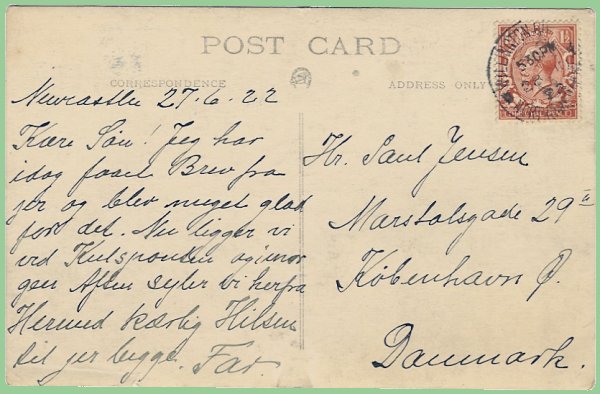 POST CARD
CORRESPONDENCE
ADDRESS ONLY
Newcastle 27-6-22
Kære Søn! Jeg har
idag faaet Brev fra
jer og blev meget glad
for det. Nu ligger vi
ved Kulspouten og imor
gen Aften sejler vi herfra
Hermed kærlig Hilsen
til jer begge. Far.
Hr. Paul Jensen
Marstalsgade 29
København Ø.
Danmark.
5-30 PM